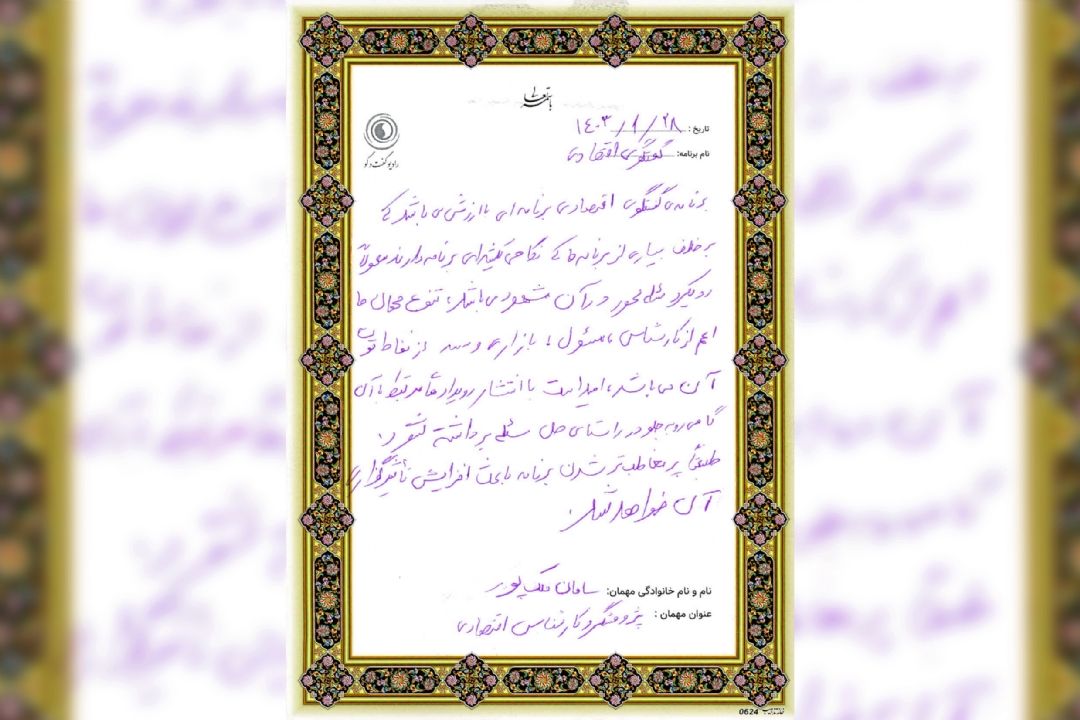 باسمه تعالی
رادیو گفت و گو
تاریخ: ۱۴۰۳/۹/۲۸
نام برنامه: گفتگوی اقتصادی
برنامه‌ی گفتگوی اقتصادی برنامه‌ای با ارزش می باشد که
بر خلاف بسیاری از برنامه ها که نگاهی به برنامه دارند معمولاً
رویکرد مسئله محور در آن مشهود می باشد، تنوع مهمان ها
اعم از کارشناس، مسئول، بازاری و ... از نقاط قوت
آن می باشد، امید است با انتشار رویدادها مرتبط با آن
گامی رو به جلو در راستای حل مسئله برداشته شود.
طبیعتاً پر مخاطب تر شدن برنامه باعث افزایش تأثیرگذاری
آن خواهد شد.
نام و نام خانوادگی مهمان: سامان ملک پور
عنوان مهمان: پژوهشگر و کارشناس اقتصادی
0624